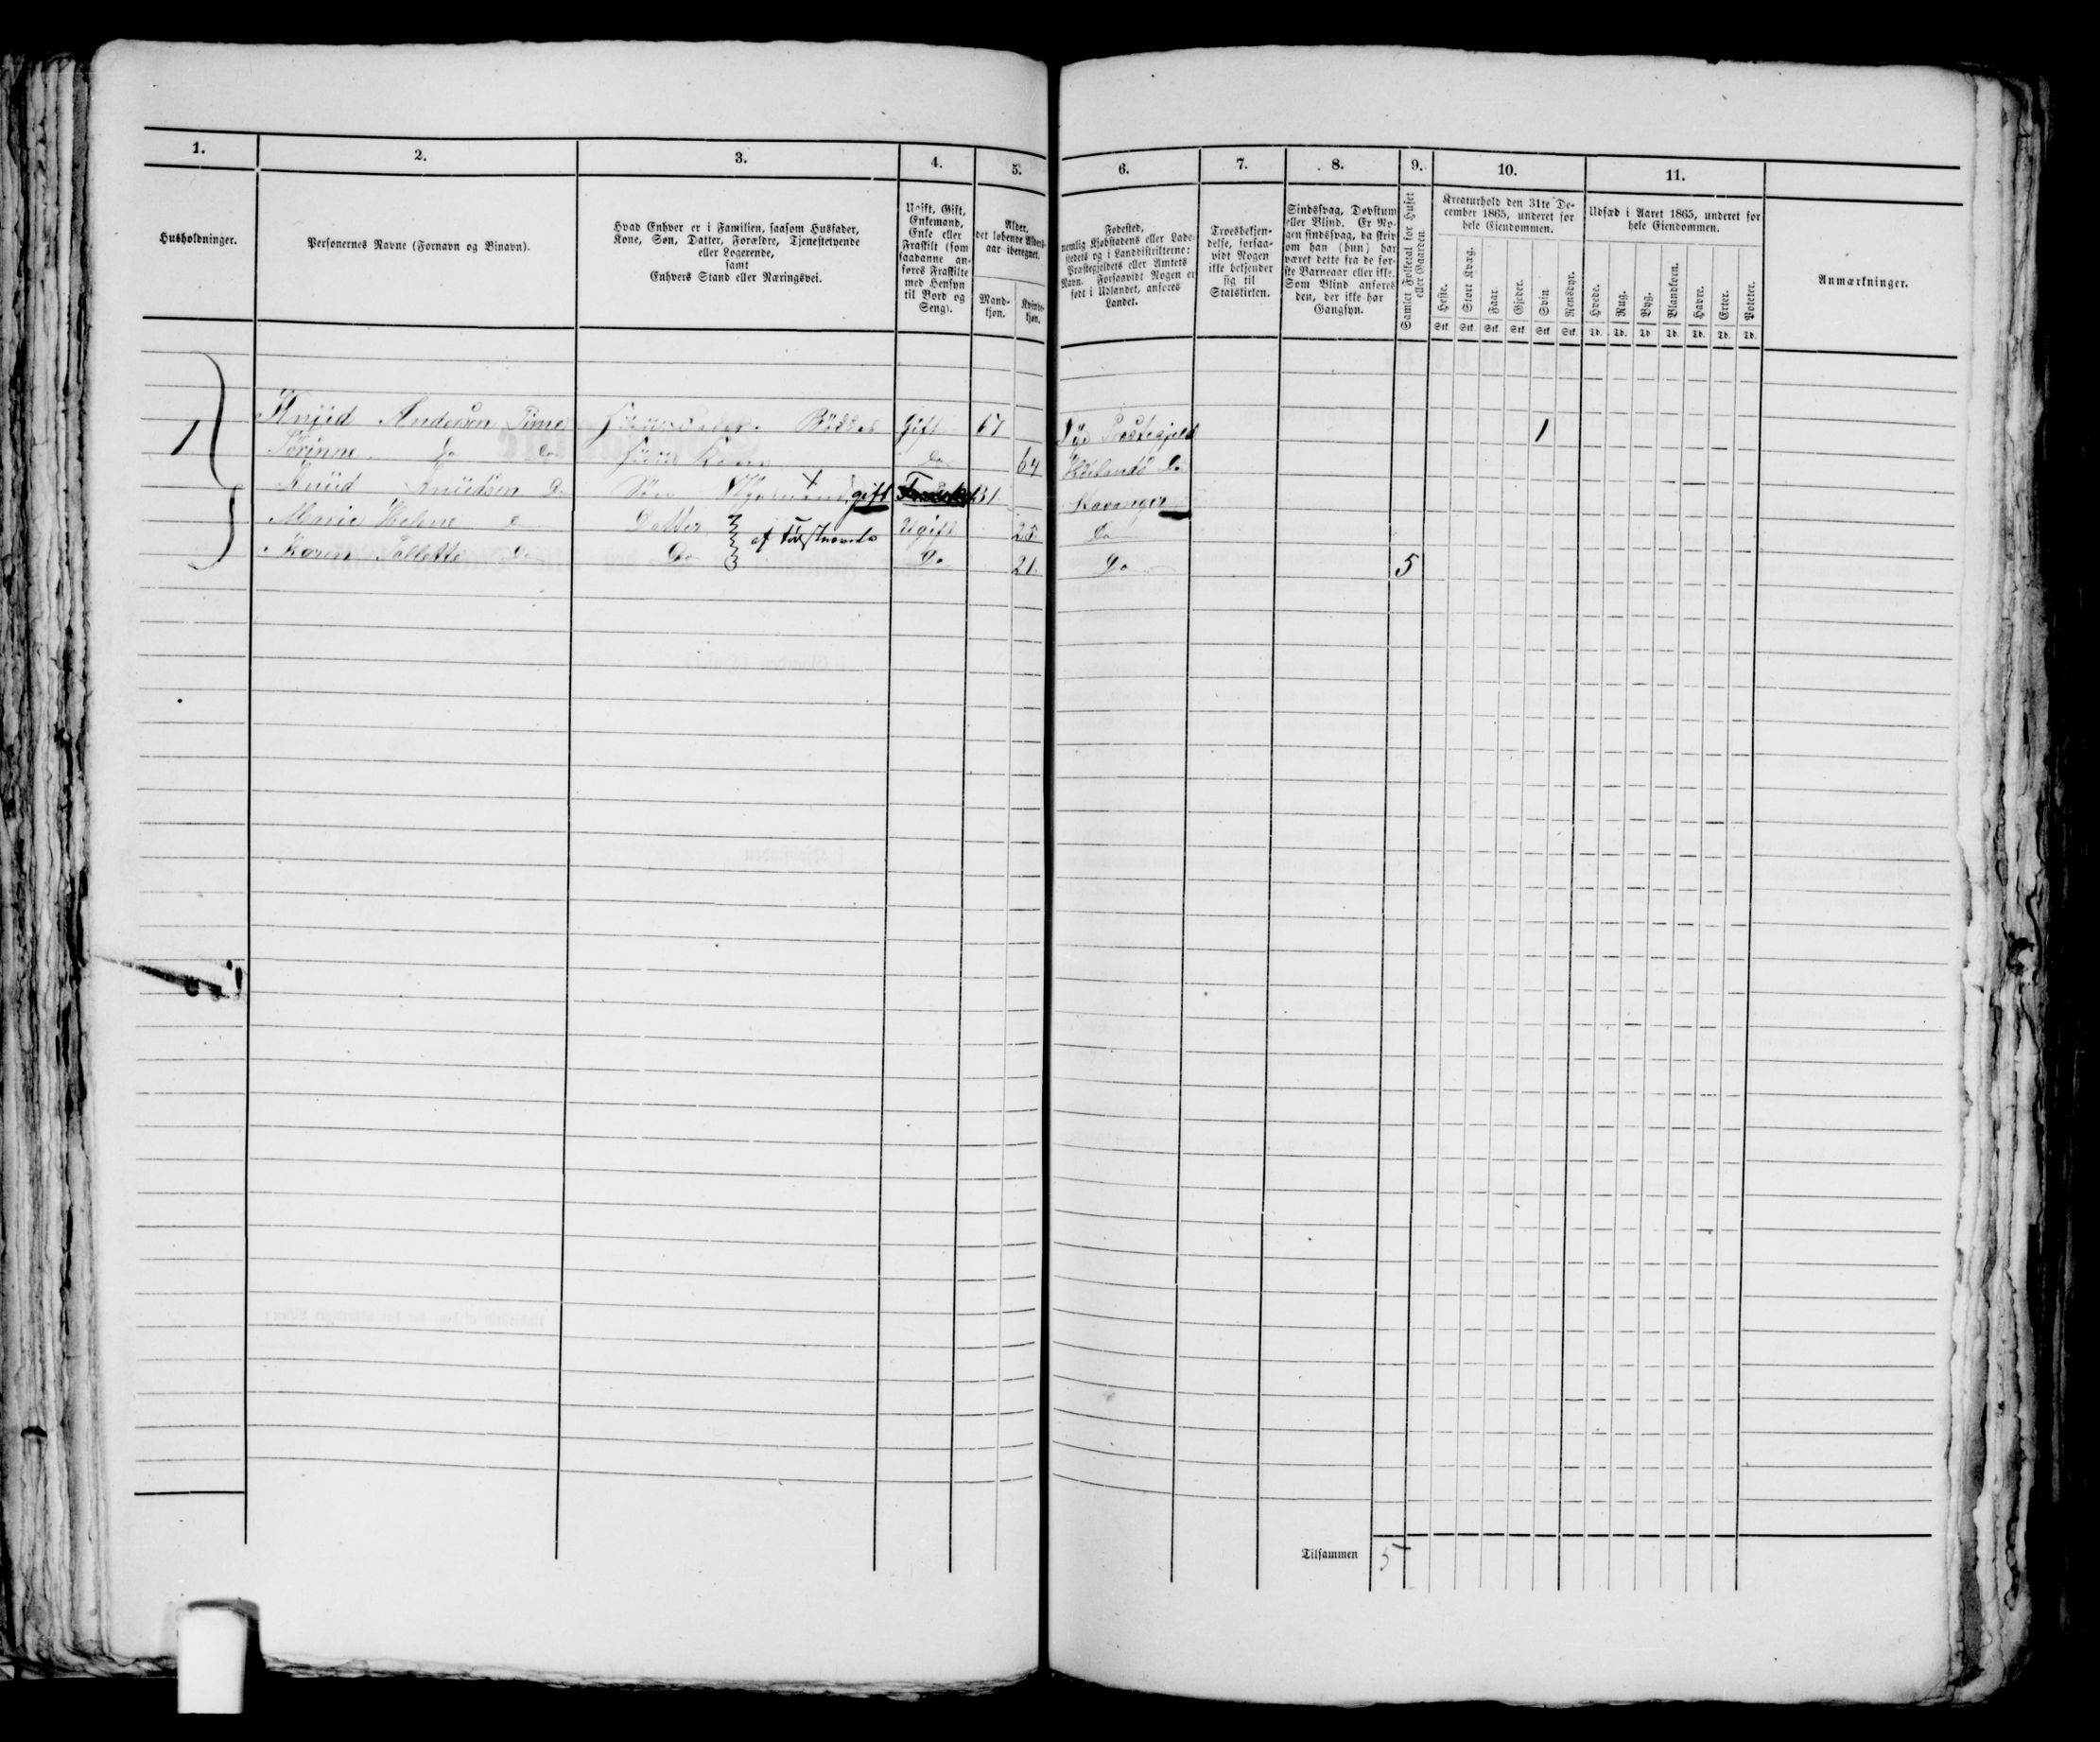 1. 2. 3. 4. 5. 6. 7. 8. 9. 10. 11.
Husholdninger.
Personernes Navne (Fornavn og Binavn).
Hvad Enhver er i Familien, saasom Husfader,
Kone, Søn, Datter, Forældre, Tjenestetyende
eller Logerende,
samt
Enhvers Stand eller Næringsvei.
Ugift, Gift,
Enkemand,
Enke eller
Fraskilt (som
saadanne an-
føres Fraskilte
med Hensyn
til Bord og
Seng).
Alder,
det løbende Alders-
aar iberegnet.
Mand-
kjøn.
Kvinde-
kjøn.
Fødested,
nemlig Kjøbstadens eller Lade-
stedets og i Landdistrikterne:
Præstegjeldets eller Amtets
Navn. Forsaavidt Nogen er
født i Udlandet, anføres
Landet.
Troesbekjen-
delse, forsaa-
vidt Nogen
ikke bekjender
sig til
Statskirken.
Sindssvag, Døvstum
eller Blind. Er No-
gen sindssvag, da skriv
om han (hun) har
været dette fra de før-
ste Barneaar eller ikke.
Som Blind anføres
den, der ikke har
Gangsyn.
Samlet Folketal for Huset
eller Gaarden.
Kreaturhold den 31te De-
cember 1865, underet for
hele Eiendommen.
Heste. Stort Kvæg. Faar. Gjeder. Svin. Rensdyr.
Stk. Stk. Stk. Stk. Stk. Stk.
Udsæd i Aaret 1865, underet for
hele Eiendommen.
Hvede. Rug. Byg. Blandkorn. Havre. Erter. Poteter.
Td. Td. Td. Td. Td. Td. Td.
Anmærkninger.
1 Knud Andersen Time Huusfader. Bødker Gift 67 Præstegjeld 1
Do Do Huus Kone Do 64 Høilands Do
Knud Knudsen Do Søn gift 31 Stavanger
Marie Helene Datter af Førstnævnte Ugift 25 Do
Karen Tallette Do Do Do 21. Do 5
Tilsammen 5